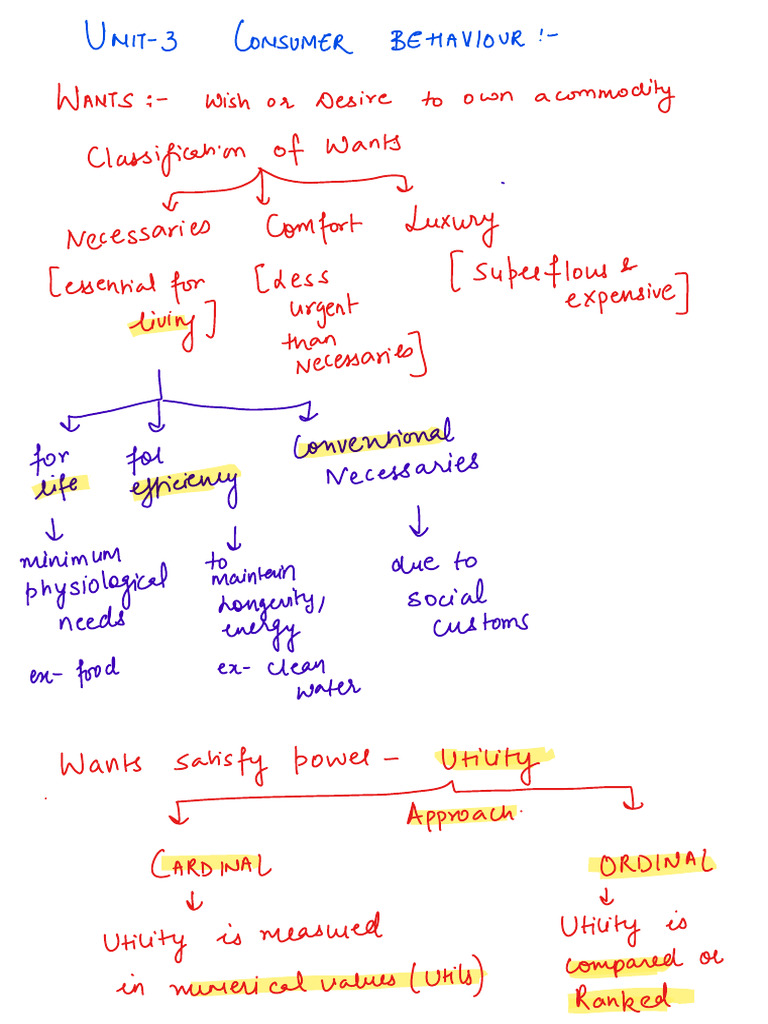 UNIT-3 CONSUMER BEHAVIOUR :-
WANTS :- Wish or Desire to own a commodity
Classification of Wants
Necessaries Comfort Luxury
[essential for living]
[Less urgent than Necessaries]
[Superflous & expensive]
for life
for efficiency
Conventional Necessaries
minimum physiological needs
ex- food
to maintain Longevity, energy
ex- clean water
due to social customs
Wants satisfy power - Utility
Approach
CARDINAL
Utility is measured
in numerical values (Utils)
ORDINAL
Utility is
compared or
Ranked